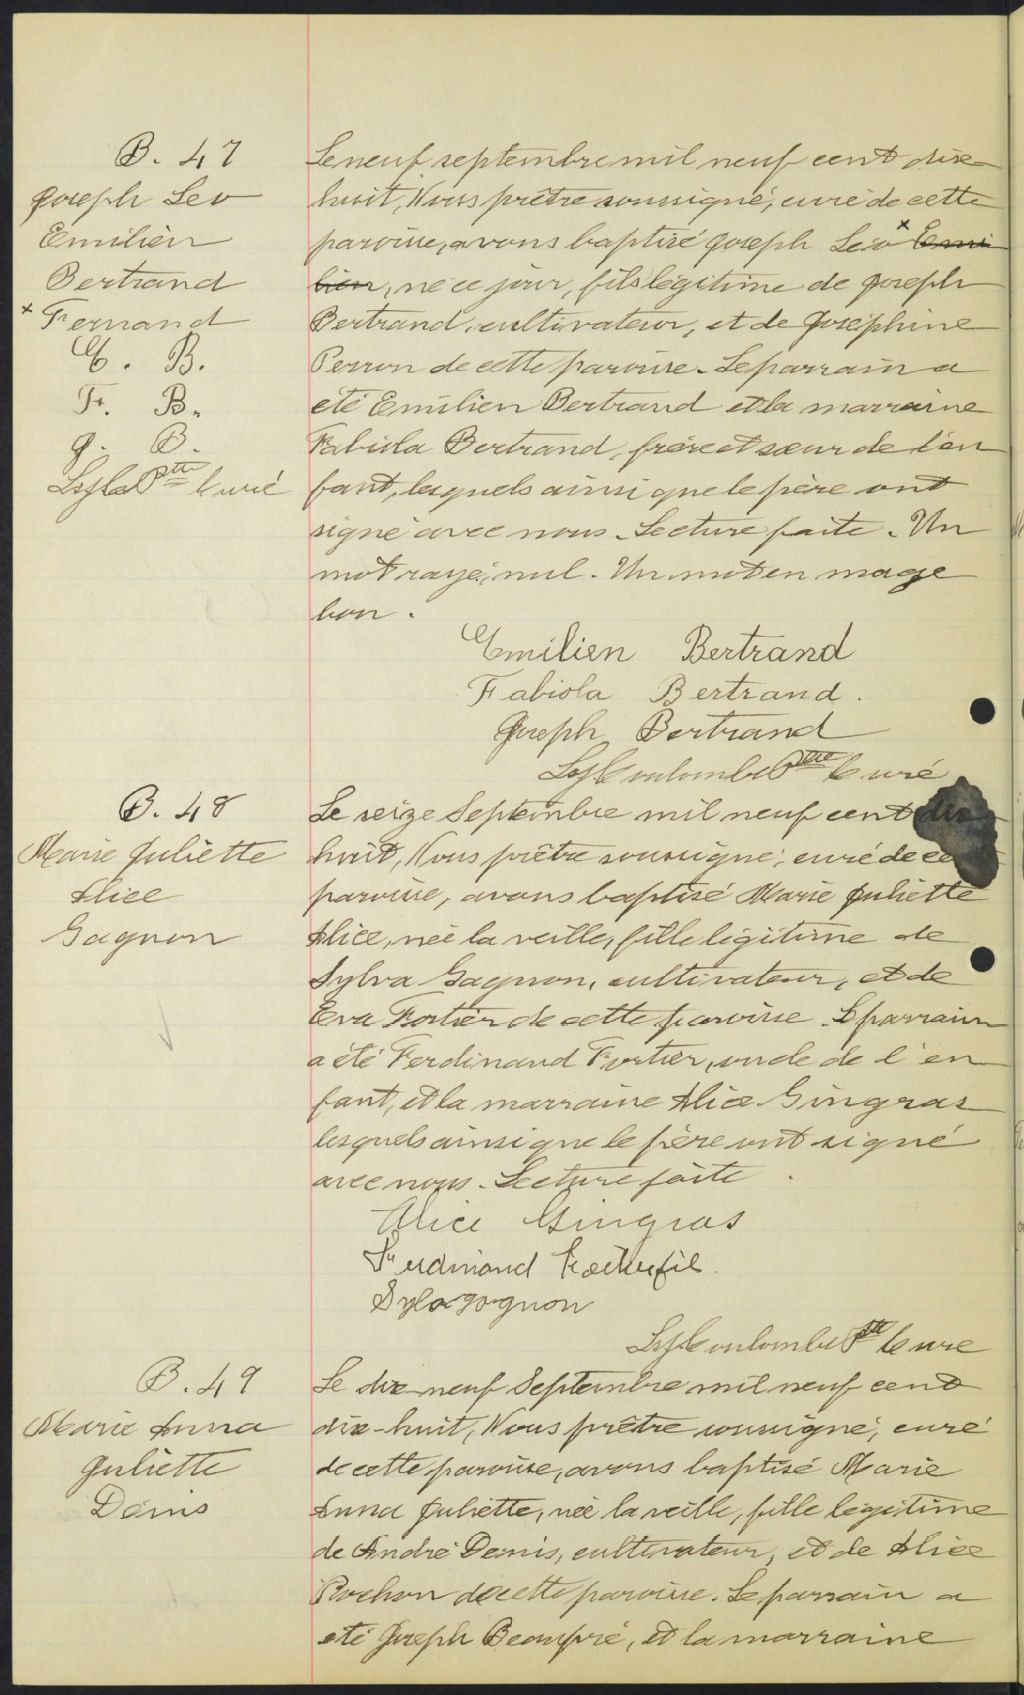 B. 47
Joseph Leo
Emilien
Bertrand
x Fernand
E. B.
F. B.
J. B.
Ptre Curé
Le neuf septembre mil neuf cent dix-
huit, Nous prêtre soussigné, curé de cette
paroisse, avons baptisé Joseph Leo x Emi
lien, né ce jour, fils légitime de Joseph
Bertrand, cultivateur, et de Joséphine
Perron de cette paroisse. Le parrain a
été Emilien Bertrand et la marraine
Fabiola Bertrand, frère et sœur de l'en
fant, lesquels ainsi que le père ont
signé avec nous. Lecture faite. Un
mot rayé, nul. Un mot en mage
bon.
Emilien Bertrand
Fabiola Bertrand.
Joseph Bertrand
Coulombe Ptre Curé
B. 48
Marie Juliette
Alice
Gagnon
Le seize Septembre mil neuf cent dix
huit, Nous prêtre soussigné, curé de ce
paroisse, avons baptisé Marie Juliette
Alice, née la veille, fille légitime de
Sylva Gagnon, cultivateur, et de
Eva Fortier de cette paroisse. Le parrain
a été Ferdinand Fortier, oncle de l'en
fant, et la marraine Alice Gingras
lesquels ainsi que le père ont signé
avec nous. Lecture faite.
Alice Gingras
Ferdinand
Sylva gognon
Coulombe Ptre Curé
B. 49
Marie Anna
Juliette
Denis
Le dix-neuf Septembre mil neuf cent
dix-huit, Nous prêtre soussigné, curé
de cette paroisse, avons baptisé Marie
Anna Juliette, née la veille, fille légitime
de André Denis, cultivateur, et de Alice
Rochon de cette paroisse. Le parrain a
été Joseph Beaupré, et la marraine